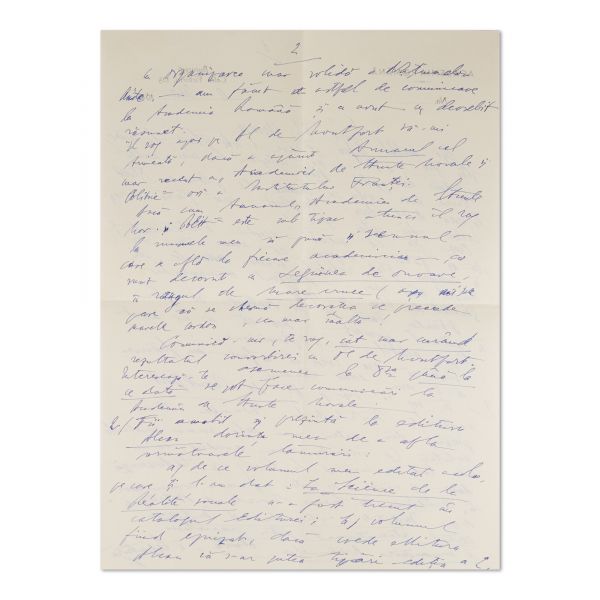 2
la organizarea mai solidă a
unde am făcut o astfel de comunicare
la Academia Română și a avut un deosebit
răsunet.
Îl rog apoi pe Dl de Montfort să-mi
trimită, dacă a apărut Anuarul cel
mai recent al Academiei de Științe Morale și
Politice ori a Institutului Franței.
Dacă cum Anuarul Academiei de Științe
Mor. și Polit. este sub tipar atunci îl rog
la numele meu să pună și semnul
care se află la fiecare academician ce
sunt decorat cu Legiunea de onoare,
în rangul de mare cruce (
pare că se cheamă decorația ce precede
marele cordon, cea mai înaltă!
Comunică-mi, te rog, cât mai curând
rezultatul convorbirei cu Dl de Montfort.
Interesează-te asemenea la până la
ce dată se pot face comunicări la
Academia de Științe Morale
2/ Fii amabil și prezintă la editura
Alcan dorința mea de a afla
următoarele lămuriri:
a) de ce volumul meu editat acolo,
pe care ți l-am dat: La Science de la
Réalité sociale n-a fost trecut în
catalogul Editurei; b) volumul
fiind epuizat, dacă crede editura
Alcan că s-ar putea tipări ediția a 2.